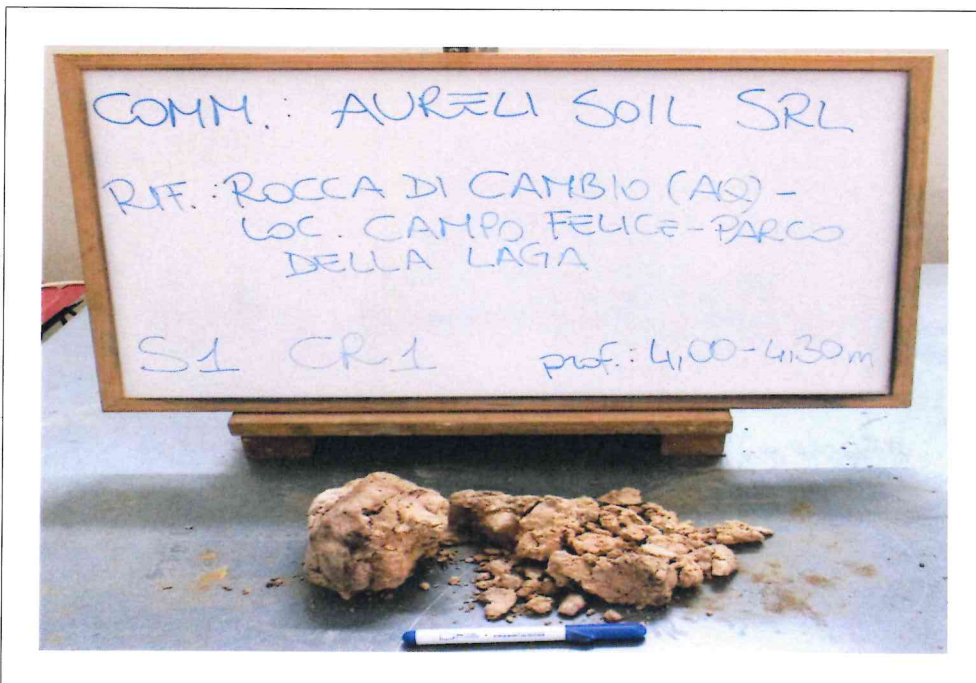 COMM.: AURELI SOIL SRL
RIF.: ROCCA DI CAMBIO (AQ) -
LOC. CAMPO FELICE - PARCO
DELLA LAGA
S1 CR1 prof.: 4,00-4,30 m